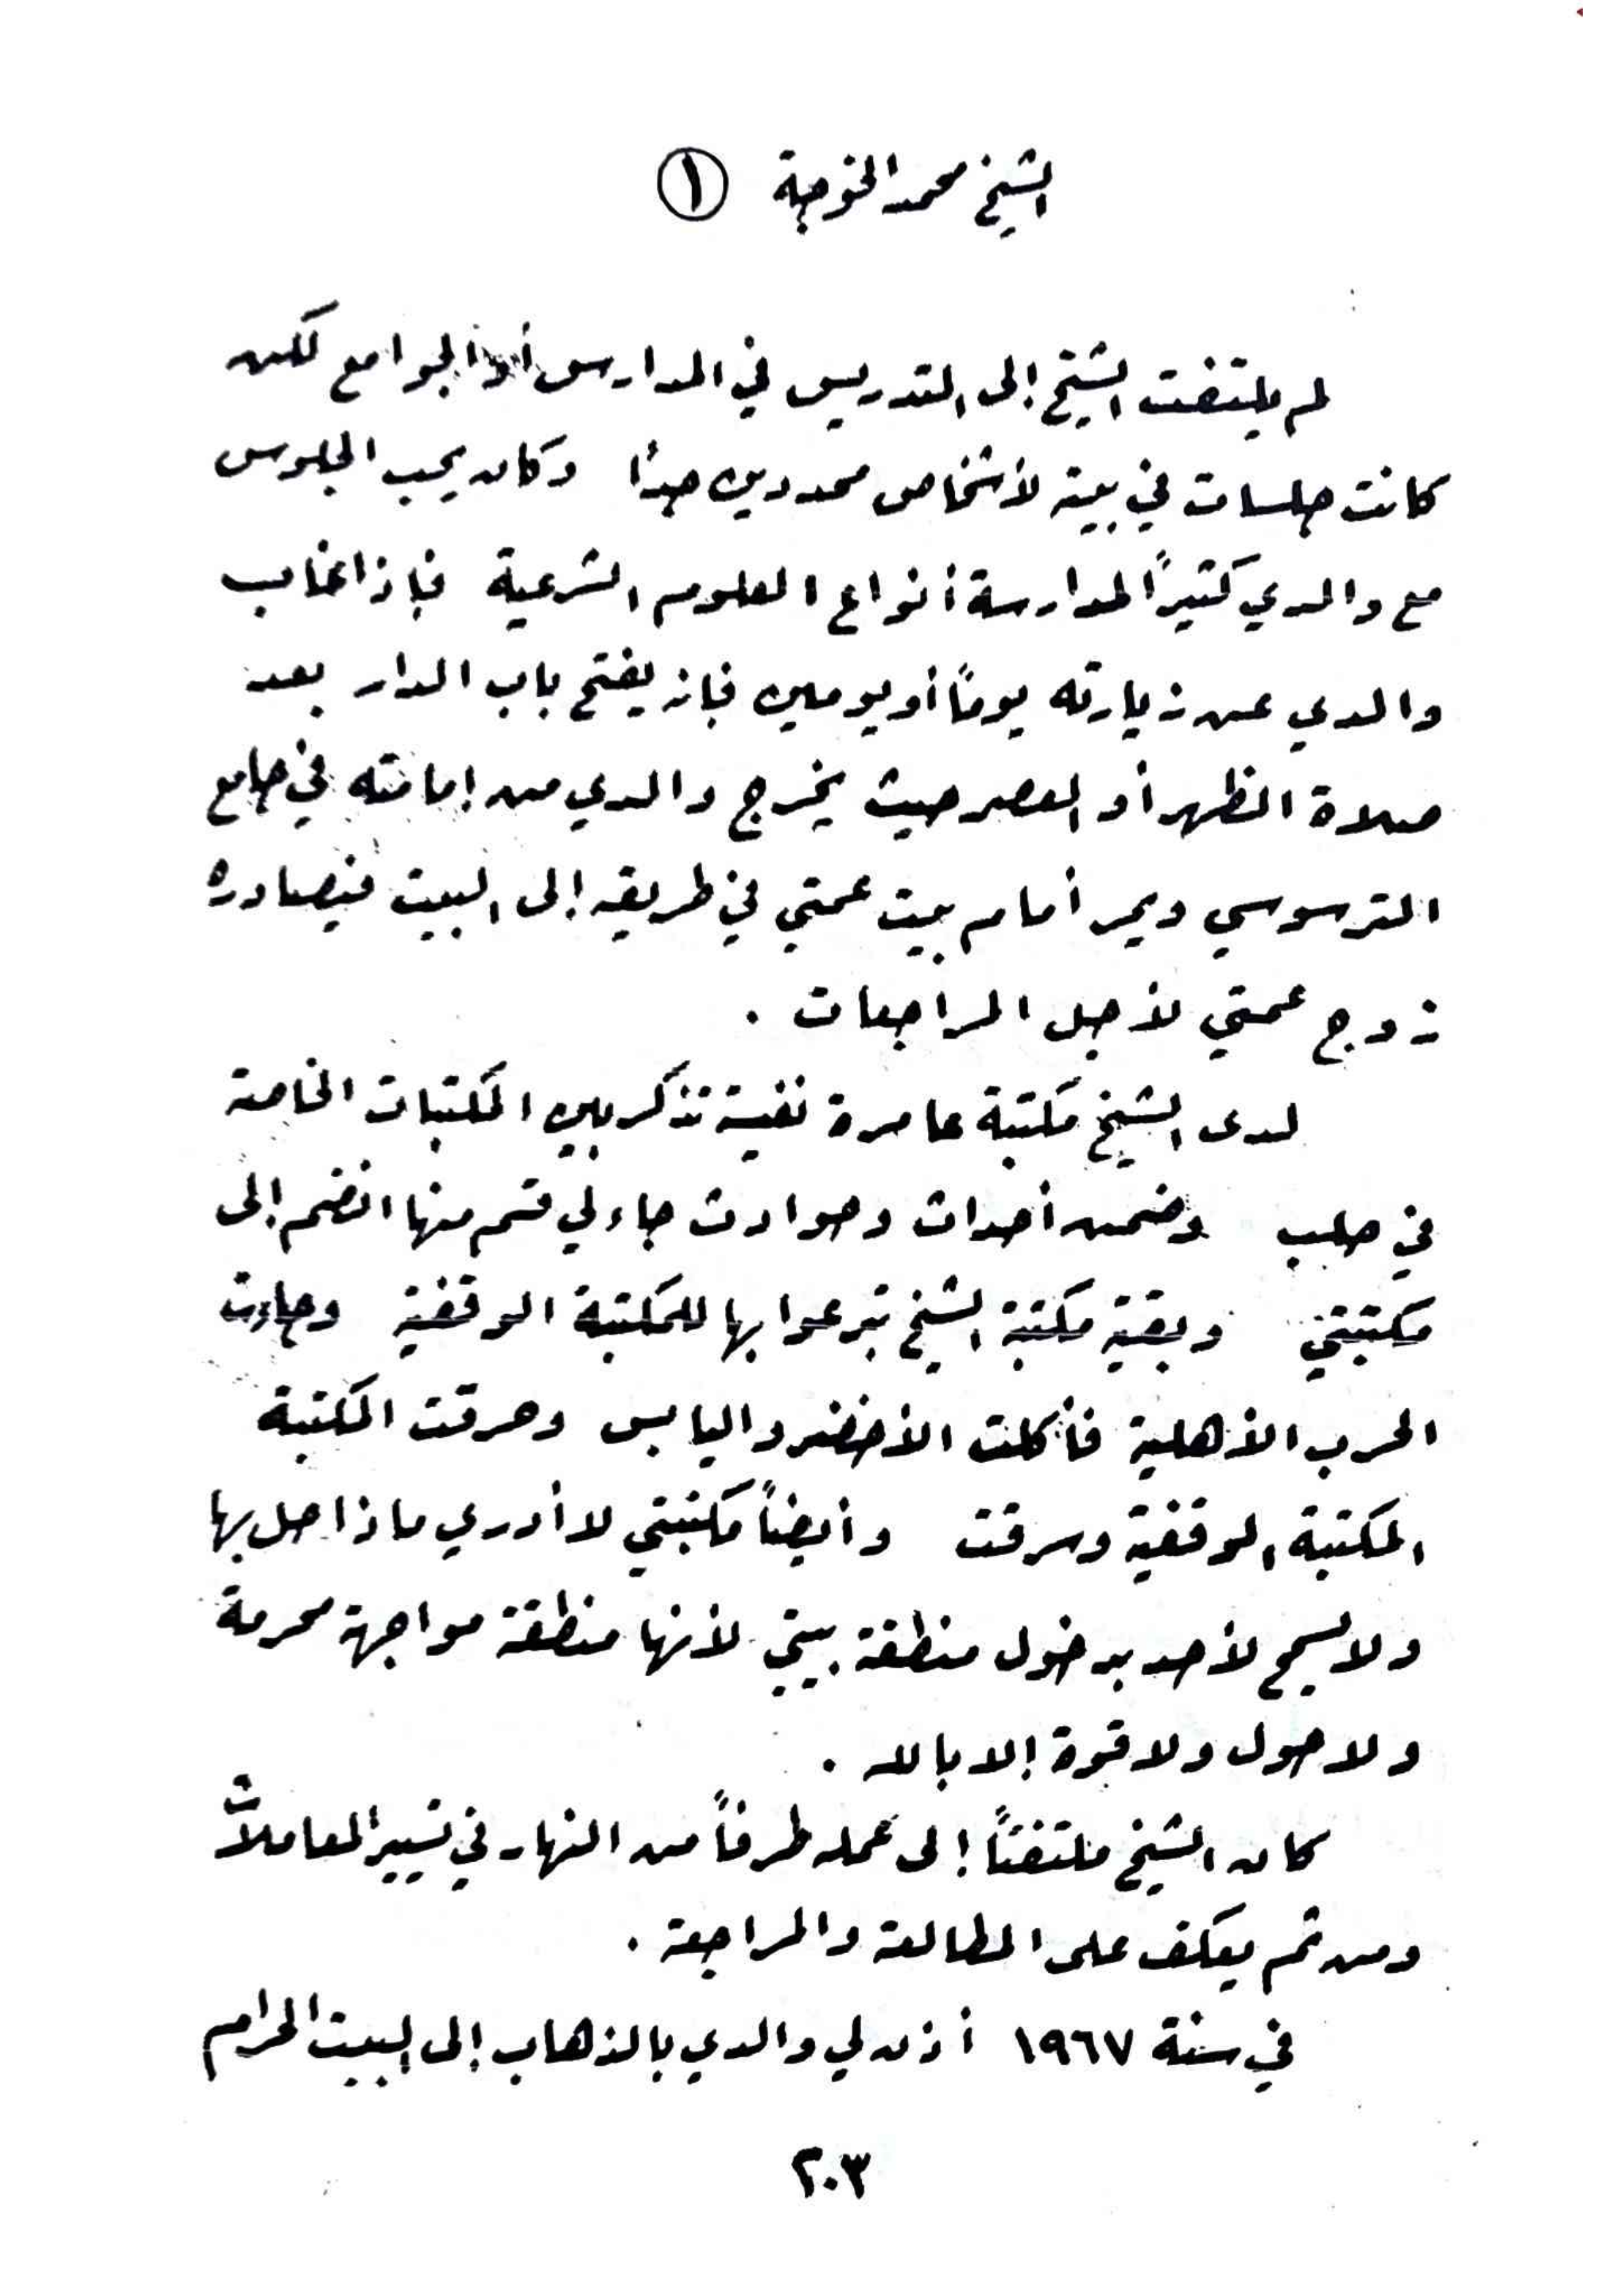 الشيخ محمد الخوجة ①
لم يلتفت الشيخ إلى التدريس في المدارس أو الجوامع لكن
كانت جلسات في بيته لأشخاص محددين جدًا وكان يحب الجلوس
مع والدي كثيرًا لمدارسة أنواع العلوم الشرعية فإذا غاب
والدي عن زيارته يومًا أو يومين فإنه يفتح باب الدار بعد
صلاة الظهر أو العصر حيث يخرج والدي من إمامته في جامع
الترسوسي ويمر أمام بيت عمتي في طريقه إلى البيت فيصادره
زوج عمتي لأجل المراجعات .
لدى الشيخ مكتبة عامرة نفيسة تذكر بين المكتبات الخاصة
في حلب وضمن أحداث وحوادث جاء لي قسم منها انضم إلى
مكتبتي وبقية مكتبة الشيخ تبرعوا بها للمكتبة الوقفية وجاءت
الحرب الأهلية فأكلت الأخضر واليابس وحرقت المكتبة
المكتبة الوقفية وسرقت وأيضًا مكتبتي لا أدري ماذا حل بها
ولا يسمح لأحد بدخول منطقة بيتي لأنها منطقة مواجهة محرمة
ولا حول ولا قوة إلا بالله .
كان الشيخ ملتفتًا إلى عمله طرفًا من النهار في تسيير المعاملات
ومن ثم يعكف على المطالعة والمراجعة .
في سنة ١٩٦٧ أذن لي والدي بالذهاب إلى البيت الحرام
٢٠٣